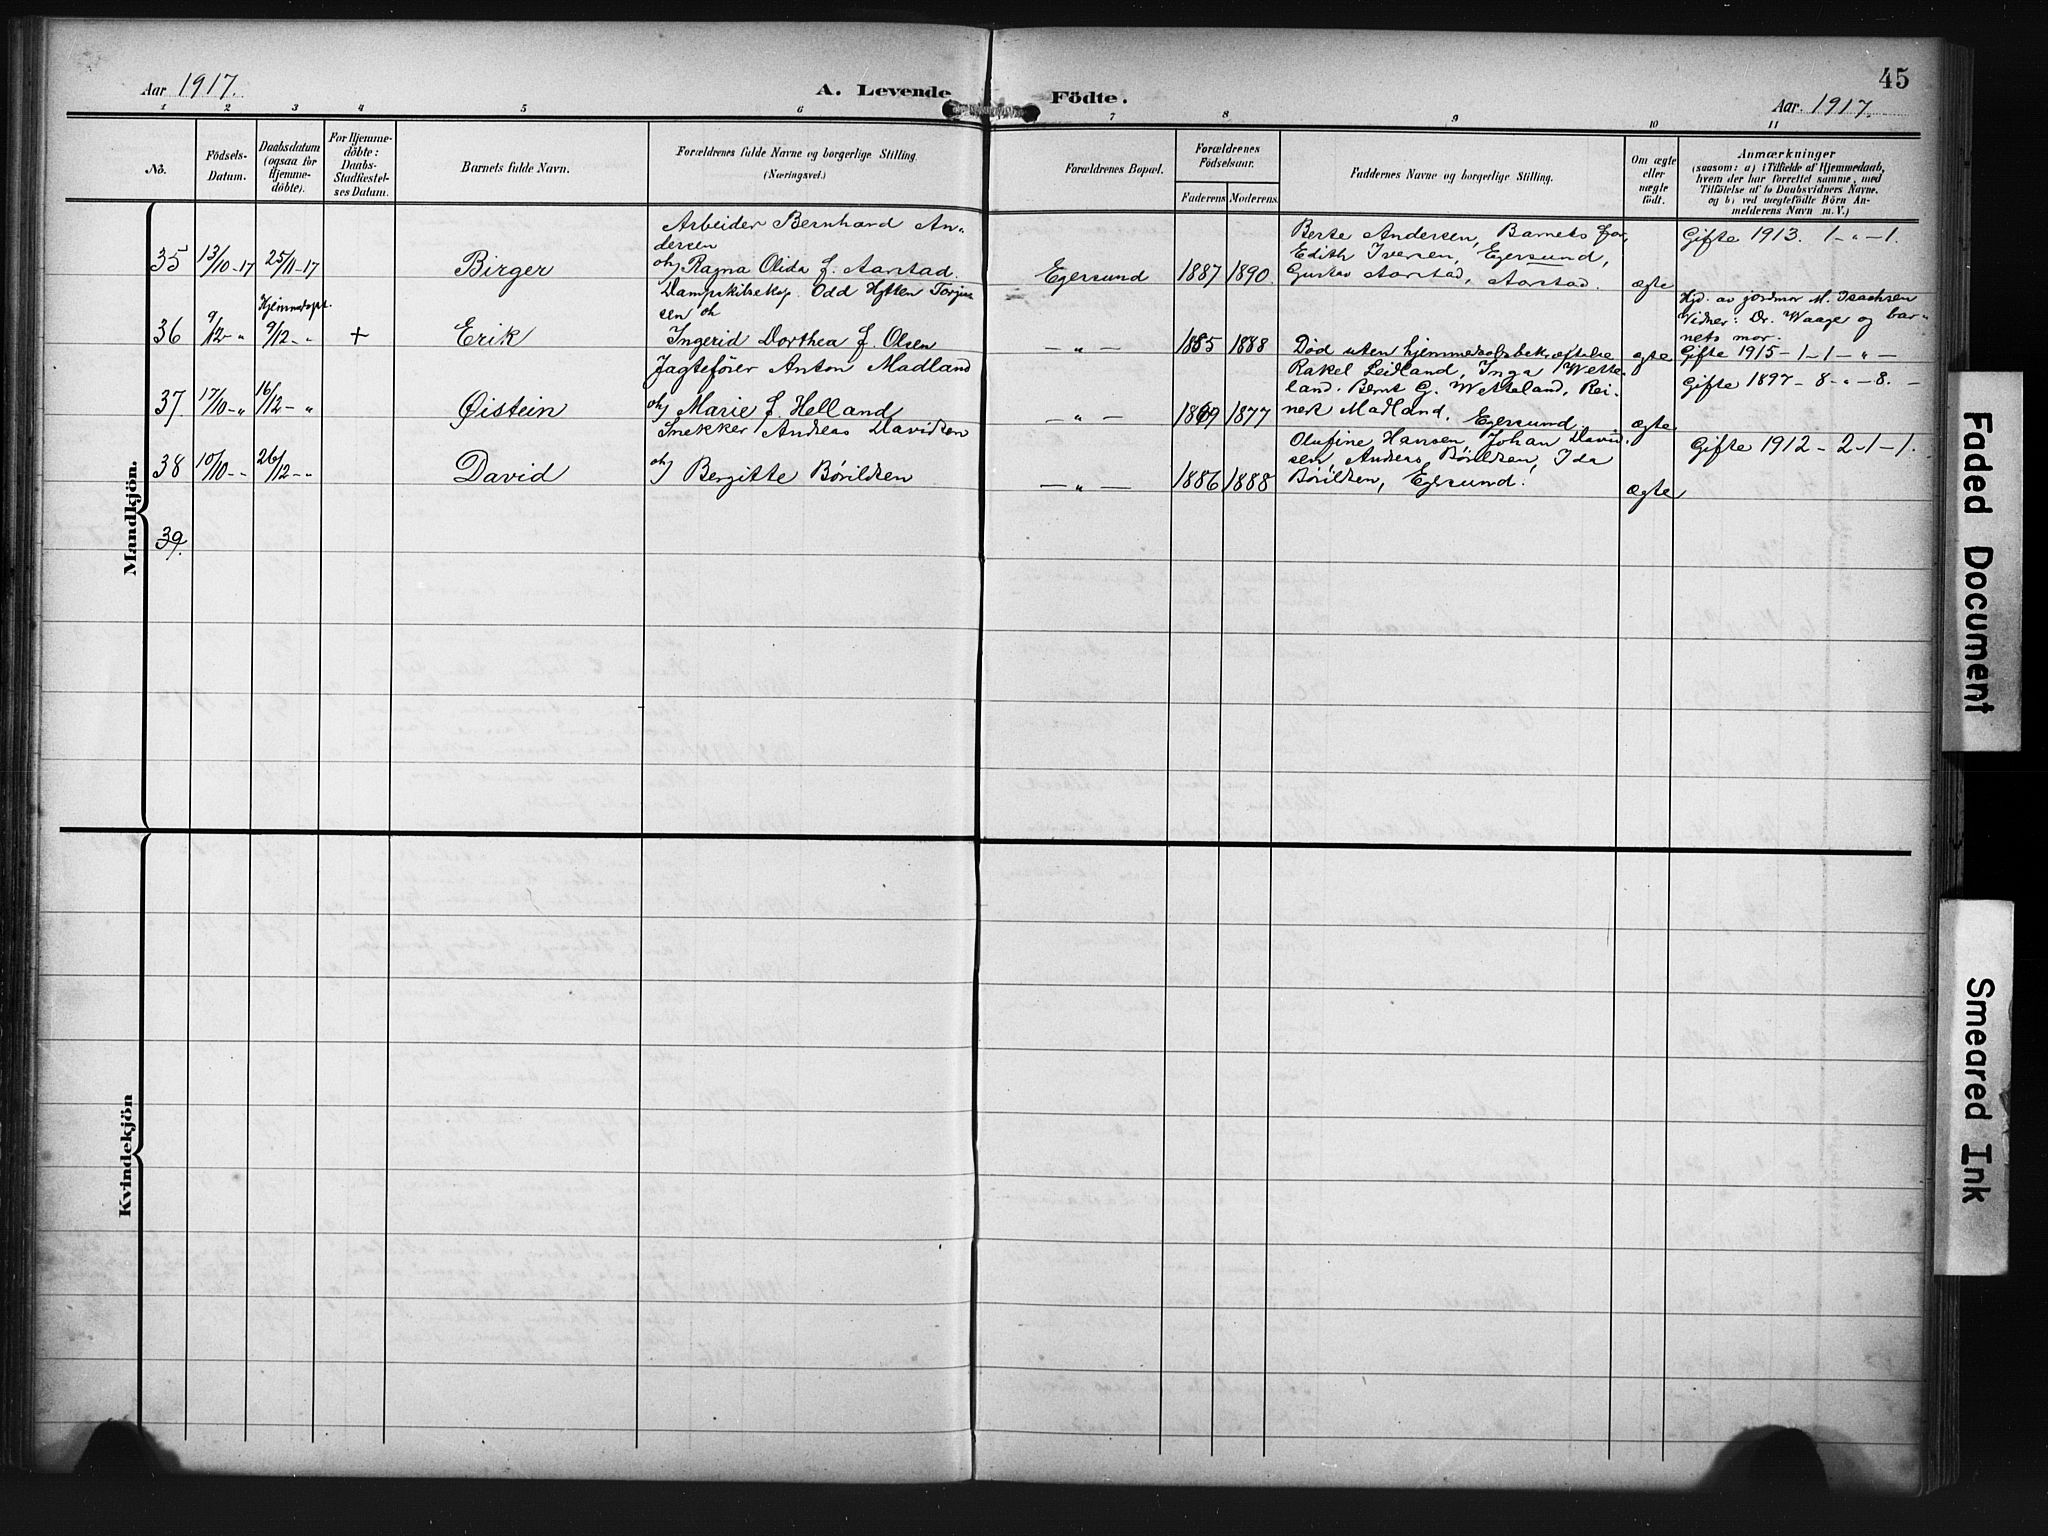 45
Aar 1917.
A. Levende Födte.
Aar. 1917.
1 2 3 4 5 6 7 8 9 10 11
No.
Födsels-
Datum.
Daabsdatum
(ogsaa for
Hjemme-
döbte).
For Hjemme-
döbte:
Daabs-
Stadfæstel-
ses Datum.
Barnets fulde Navn.
Forældrenes fulde Navne og borgerlige Stilling.
(Næringsvei.)
Forældrenes Bopæl.
Forældrenes
Födselsaar.
Faderens Moderens
Faddernes Navne og borgerlige Stilling.
Om ægte
eller
uægte
födt.
Anmærkninger
(saasom: a) i Tilfælde af Hjemmedaab,
hvem der har forrettet samme, med
Tilföielse af to Daabsvidners Navne,
og b) ved uægtefödte Börn An-
melderens Navn m. V.)
Mandkjön.
35 13/10-17 25/11-17 Birger
Arbeider Bernhard An-
dersen
oh Ragna Olida f. Aarstad.
Egersund 1887 1890.
Berte Andersen, Barnets far,
Edith Iversen, Egersund,
Gustav Aarstad, Aarstad.
ægte
Gifte 1913. 1-"-1.
36 9/12 - " Hjemmedøpt 9/12 - " + Erik
Dampskibseksp. Odd Hytten Torjus
sen oh
Ingerid Dorthea f. Olsen
-"- 1885 1888
Død uten hjemmedaabsbekræftelse
ægte
Hjd. av jordmor M. Isachsen
Vidner: Dr. Waage og bar-
nets mor.
Gifte 1915-1-1-"-
37. 17/10-" 16/12-" Øistein
Jagtefører Anton Madland
oh Marie f. Helland
-"- 1869 1877
Rakel Leidland, Inga Wette-
land. Bernt G. Wetteland, Rei-
nert Madland. Egersund
ægte
Gifte 1897-8-"-8.-
38 10/10-" 26/12-" David
Snekker Andreas Davidsen
oh Bergitte Børildsen
-"- 1886 1888
Olufine Hansen, Johan David-
sen, Andreas Børildsen, Ida
Børildsen, Egersund.
ægte
Gifte 1912-2-1-1.
39.
Kvindekjön
Faded Document
Smeared Ink